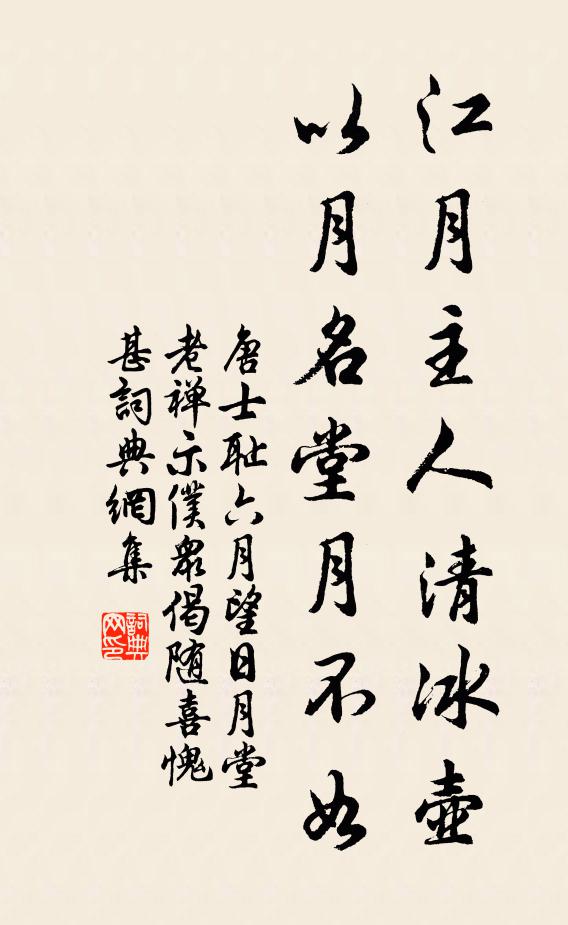 江月主人清冰壺
以月名堂月不如
唐士耻六月望日月堂
老禅示僕衆偈随喜愧
甚詞典網集
詞典网印